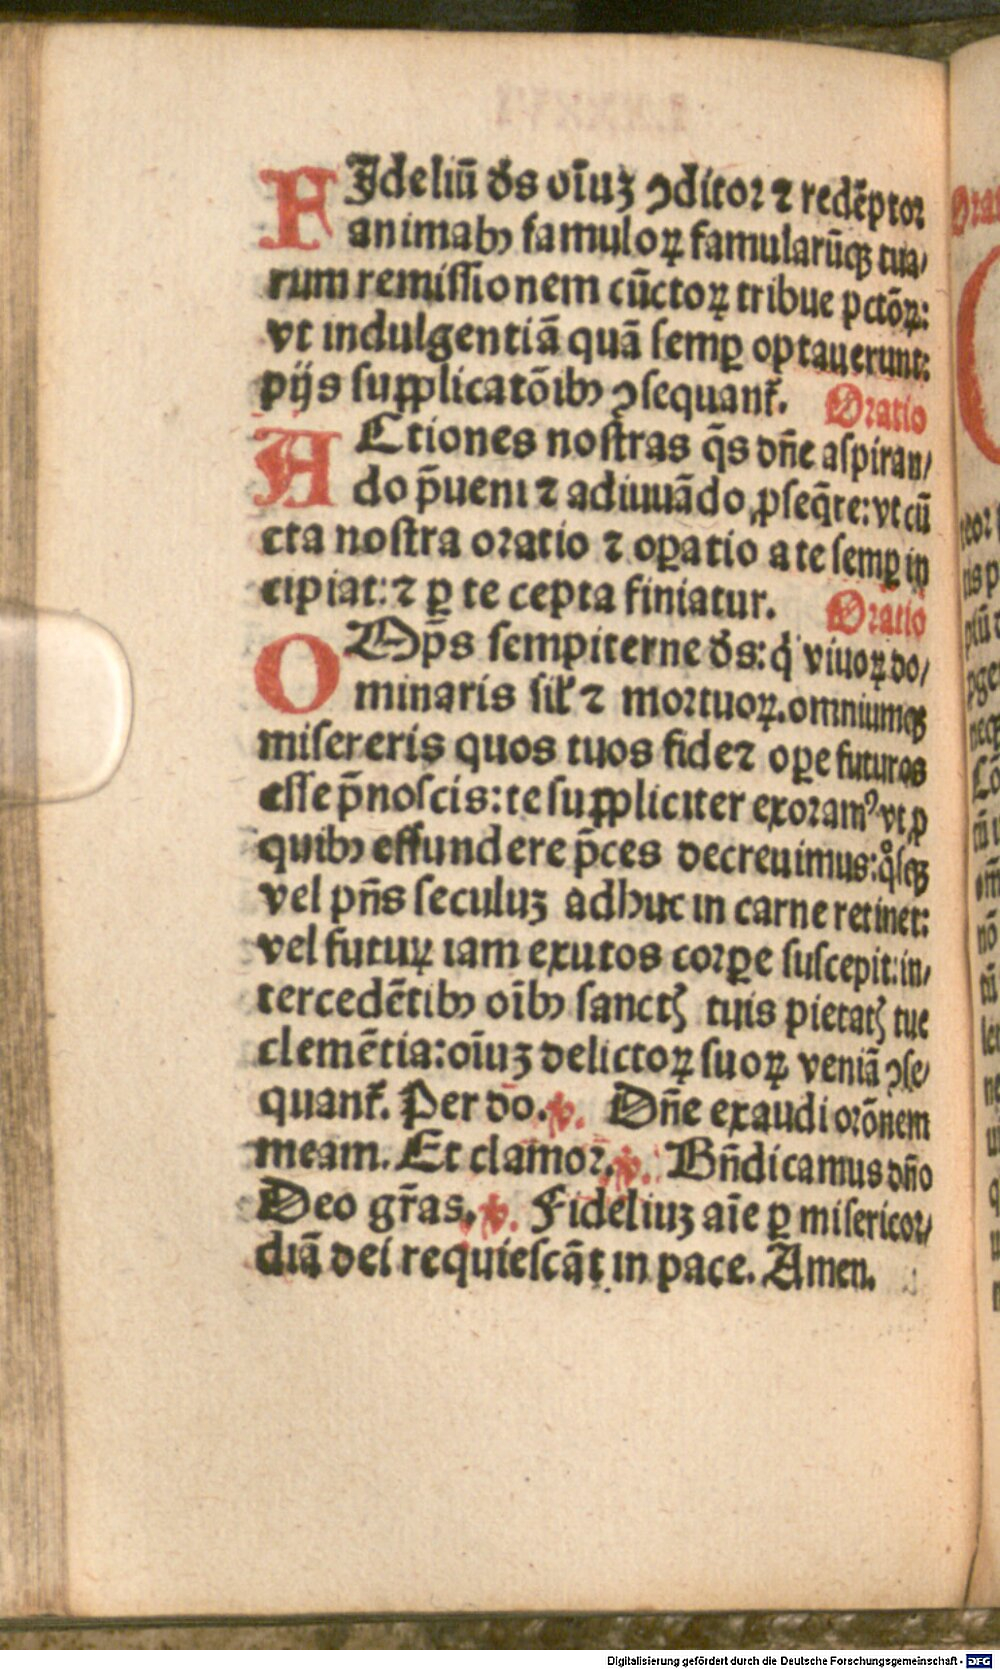 FIdeliū ds̄ oīuꝫ ꝯditor ⁊ redēptor
animabꝰ famuloꝝ famularūqꝫ tua/
rum remissionem cūctoꝝ tribue pctōꝝ:
vt indulgentiā quā semꝑ optauerunt:
pijs supplicatōibꝰ ꝯsequant᷑. Oratio
ACtiones nostras q̄s dn̄e aspiran/
do p̄ueni ⁊ adiuuādo ꝓseq̄re: vt cū
cta nostra oratio ⁊ oꝑatio a te semꝑ in
cipiat: ⁊ ꝑ te cepta finiatur. Oratio
OMp̄s sempiterne ds̄: q̇ viuoꝝ do/
minaris sil̕ ⁊ mortuoꝝ. omniumqꝫ
misereris quos tuos fide ⁊ oꝑe futuros
esse p̄noscis: te suppliciter exoramꝰ vt ꝓ
quibꝰ effundere p̄ces decreuimus: qͦsqꝫ
vel pn̄s seculuꝫ adhuc in carne retinet:
vel futuꝝ iam exutos corꝑe suscepit: in/
tercedētibꝰ oībꝰ sanctꝭ tuis pietatꝭ tue
clemētia: oīuꝫ delictoꝝ suoꝝ veniā ꝯse/
quant᷑. Per do. ℣. Dn̄e exaudi orōnem
meam. Et clamor. ℣. Bn̄dicamus dn̄o
Deo gr̄as. ℣. Fideliuꝫ aīe ꝑ misericor/
diā dei requiescāt in pace. Amen.
Digitalisierung gefördert durch die Deutsche Forschungsgemeinschaft - DFG